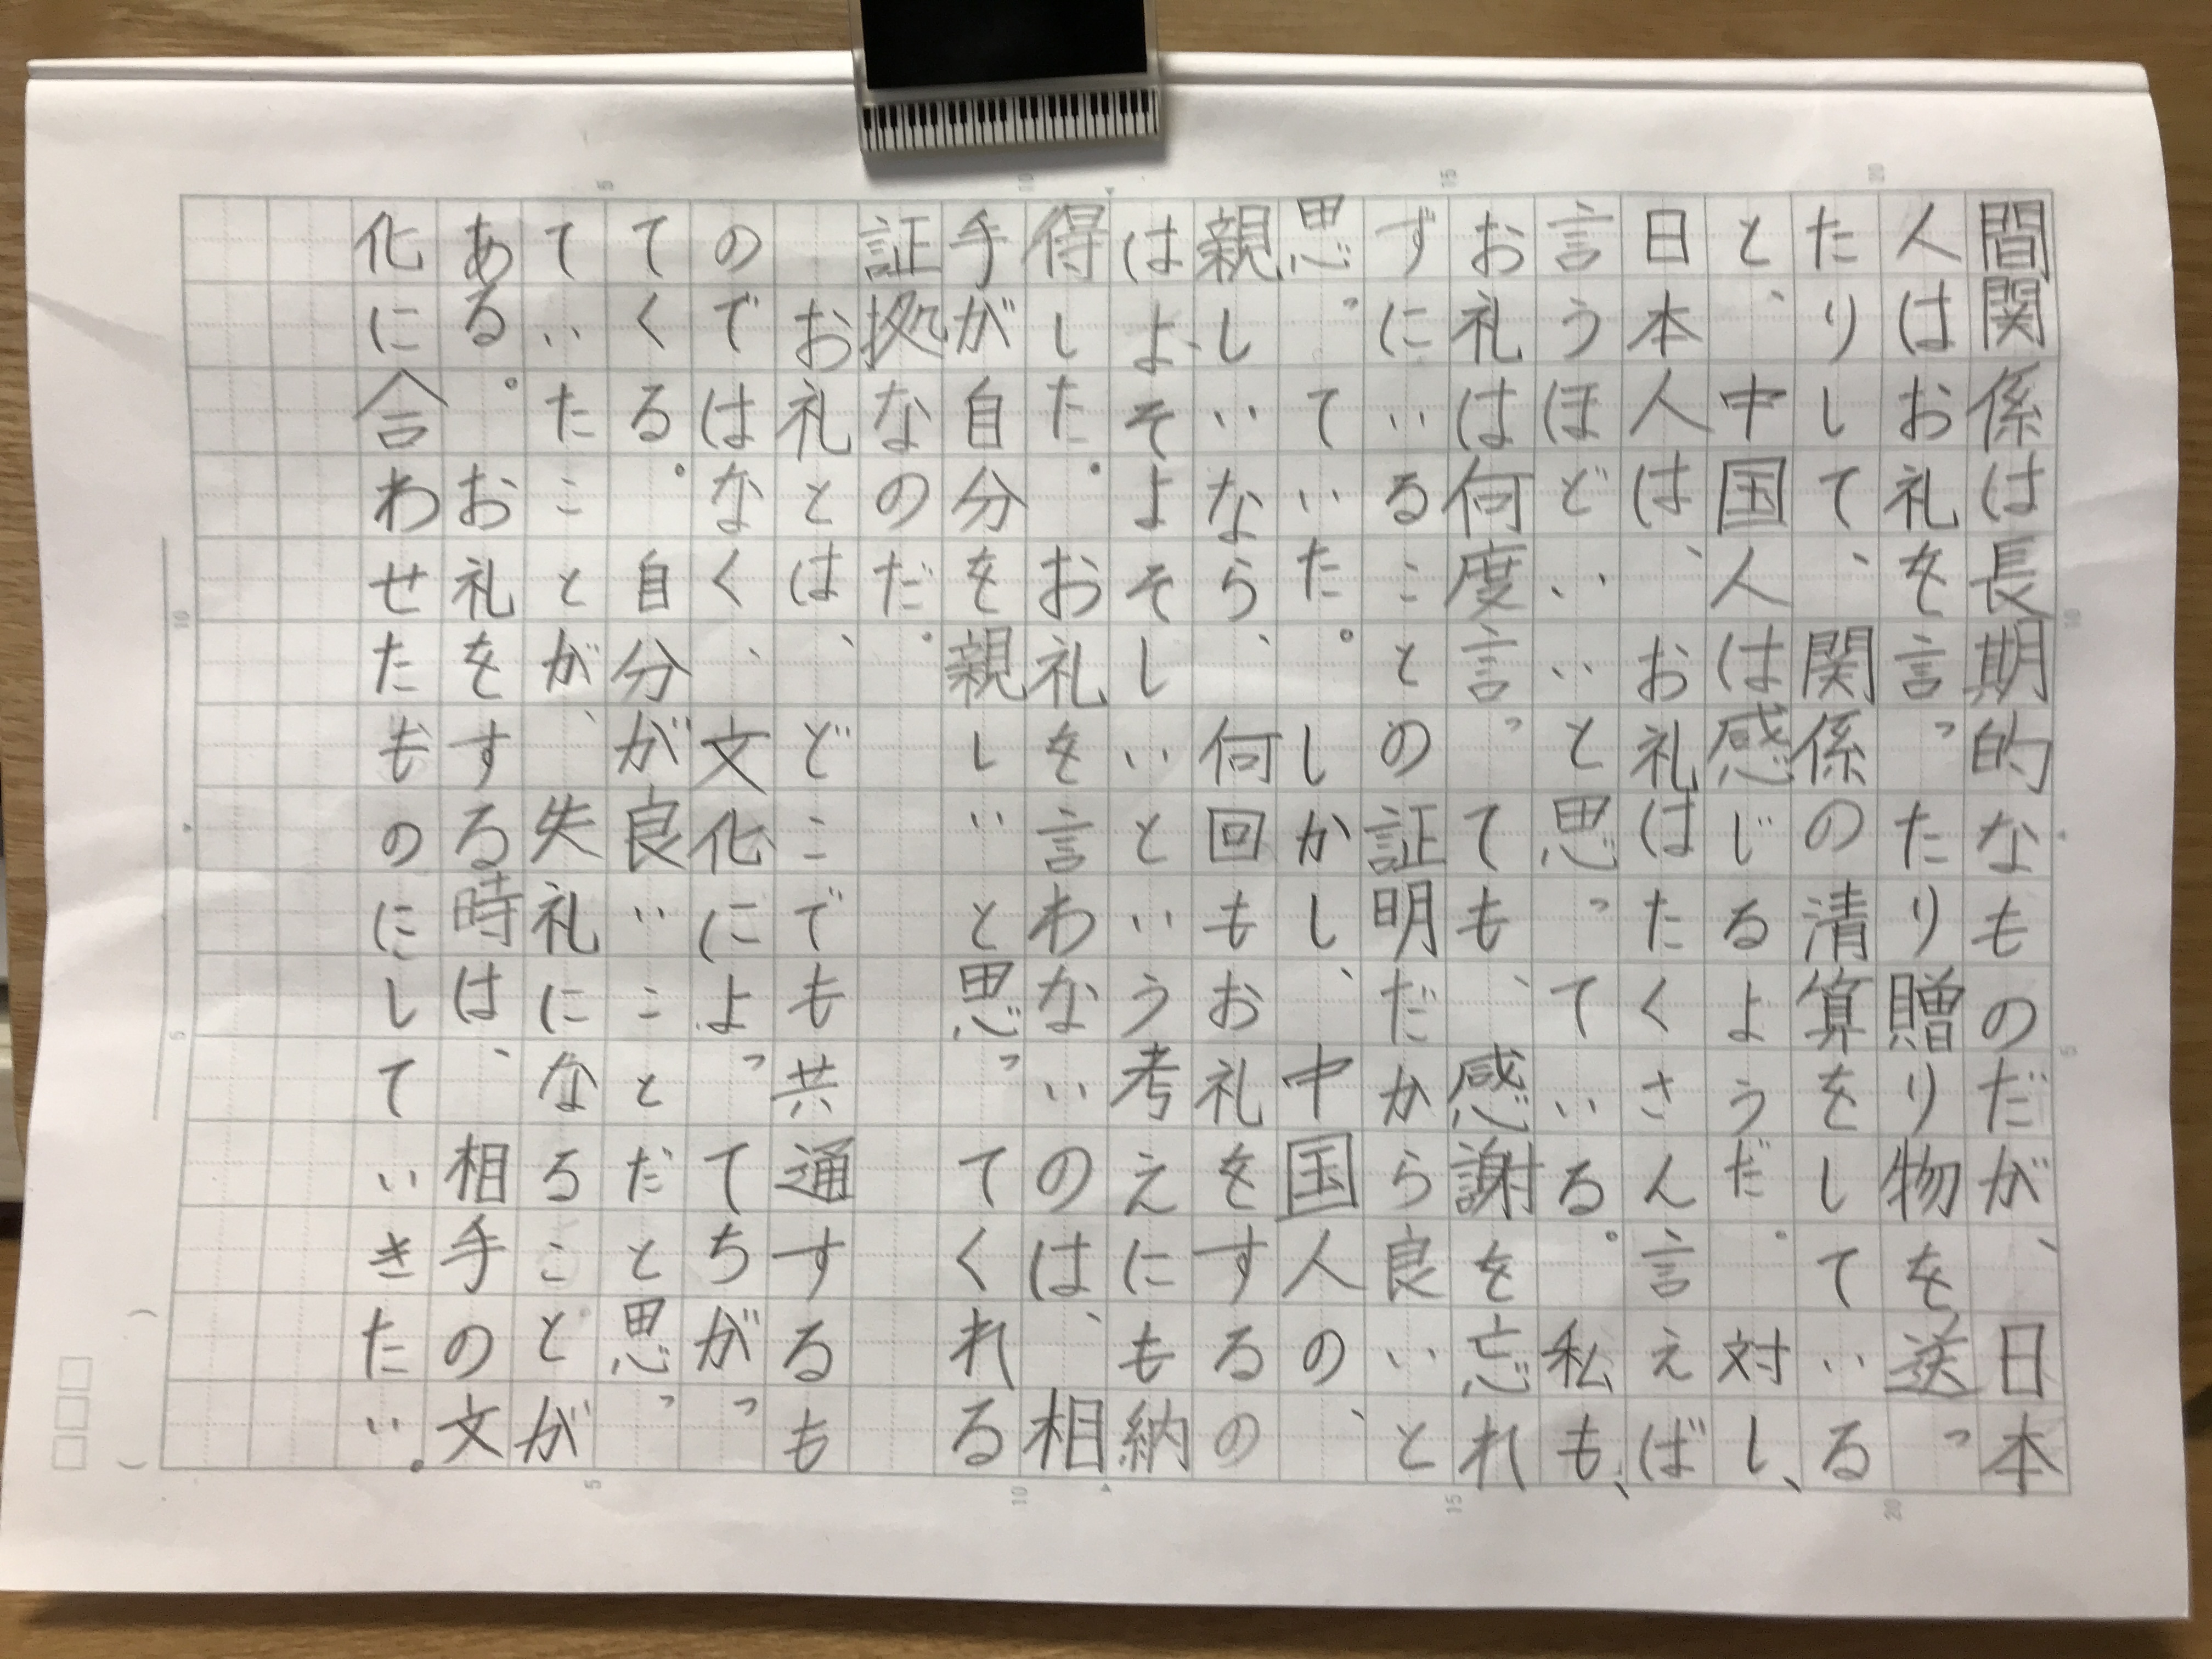 間関係は長期的なものだが、日本
人はお礼を言ったり贈り物を送っ
たりして、関係の清算をしている
と、中国人は感じるようだ。対し、
日本人は、お礼はたくさん言えば
言うほどいいと思っている。私も、
お礼は何度言っても、感謝を忘れ
ずにいることの証明だから良いと
思っていた。しかし、中国人の、
親しいなら、何回もお礼をするの
はよそよそしいという考えにも納
得した。お礼を言わないのは、相
手が自分を親しいと思ってくれる
証拠なのだ。
　お礼とは、どこでも共通するも
のではなく、文化によってちがっ
てくる。自分が良いことだと思っ
ていたことが、失礼になることが
ある。お礼をする時は、相手の文
化に合わせたものにしていきたい。